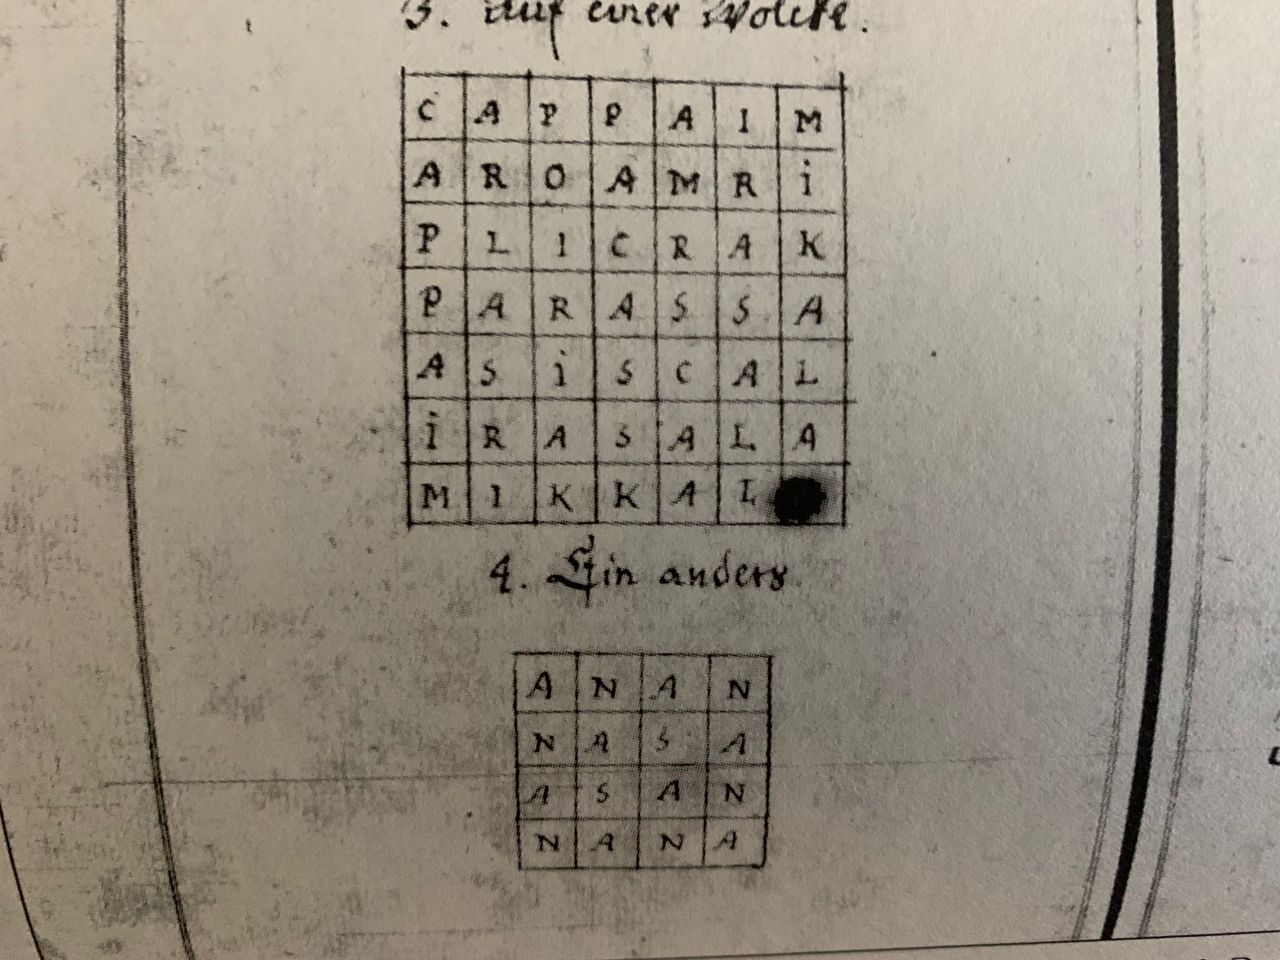 3. Auf einer Wolcke.
C A P P A I M
A R O A M R i
P L I C R A K
P A R A S S A
A S i S C A L
i R A S A L A
M I K K A L
4. Ein anders
A N A N
N A S A
A S A N
N A N A